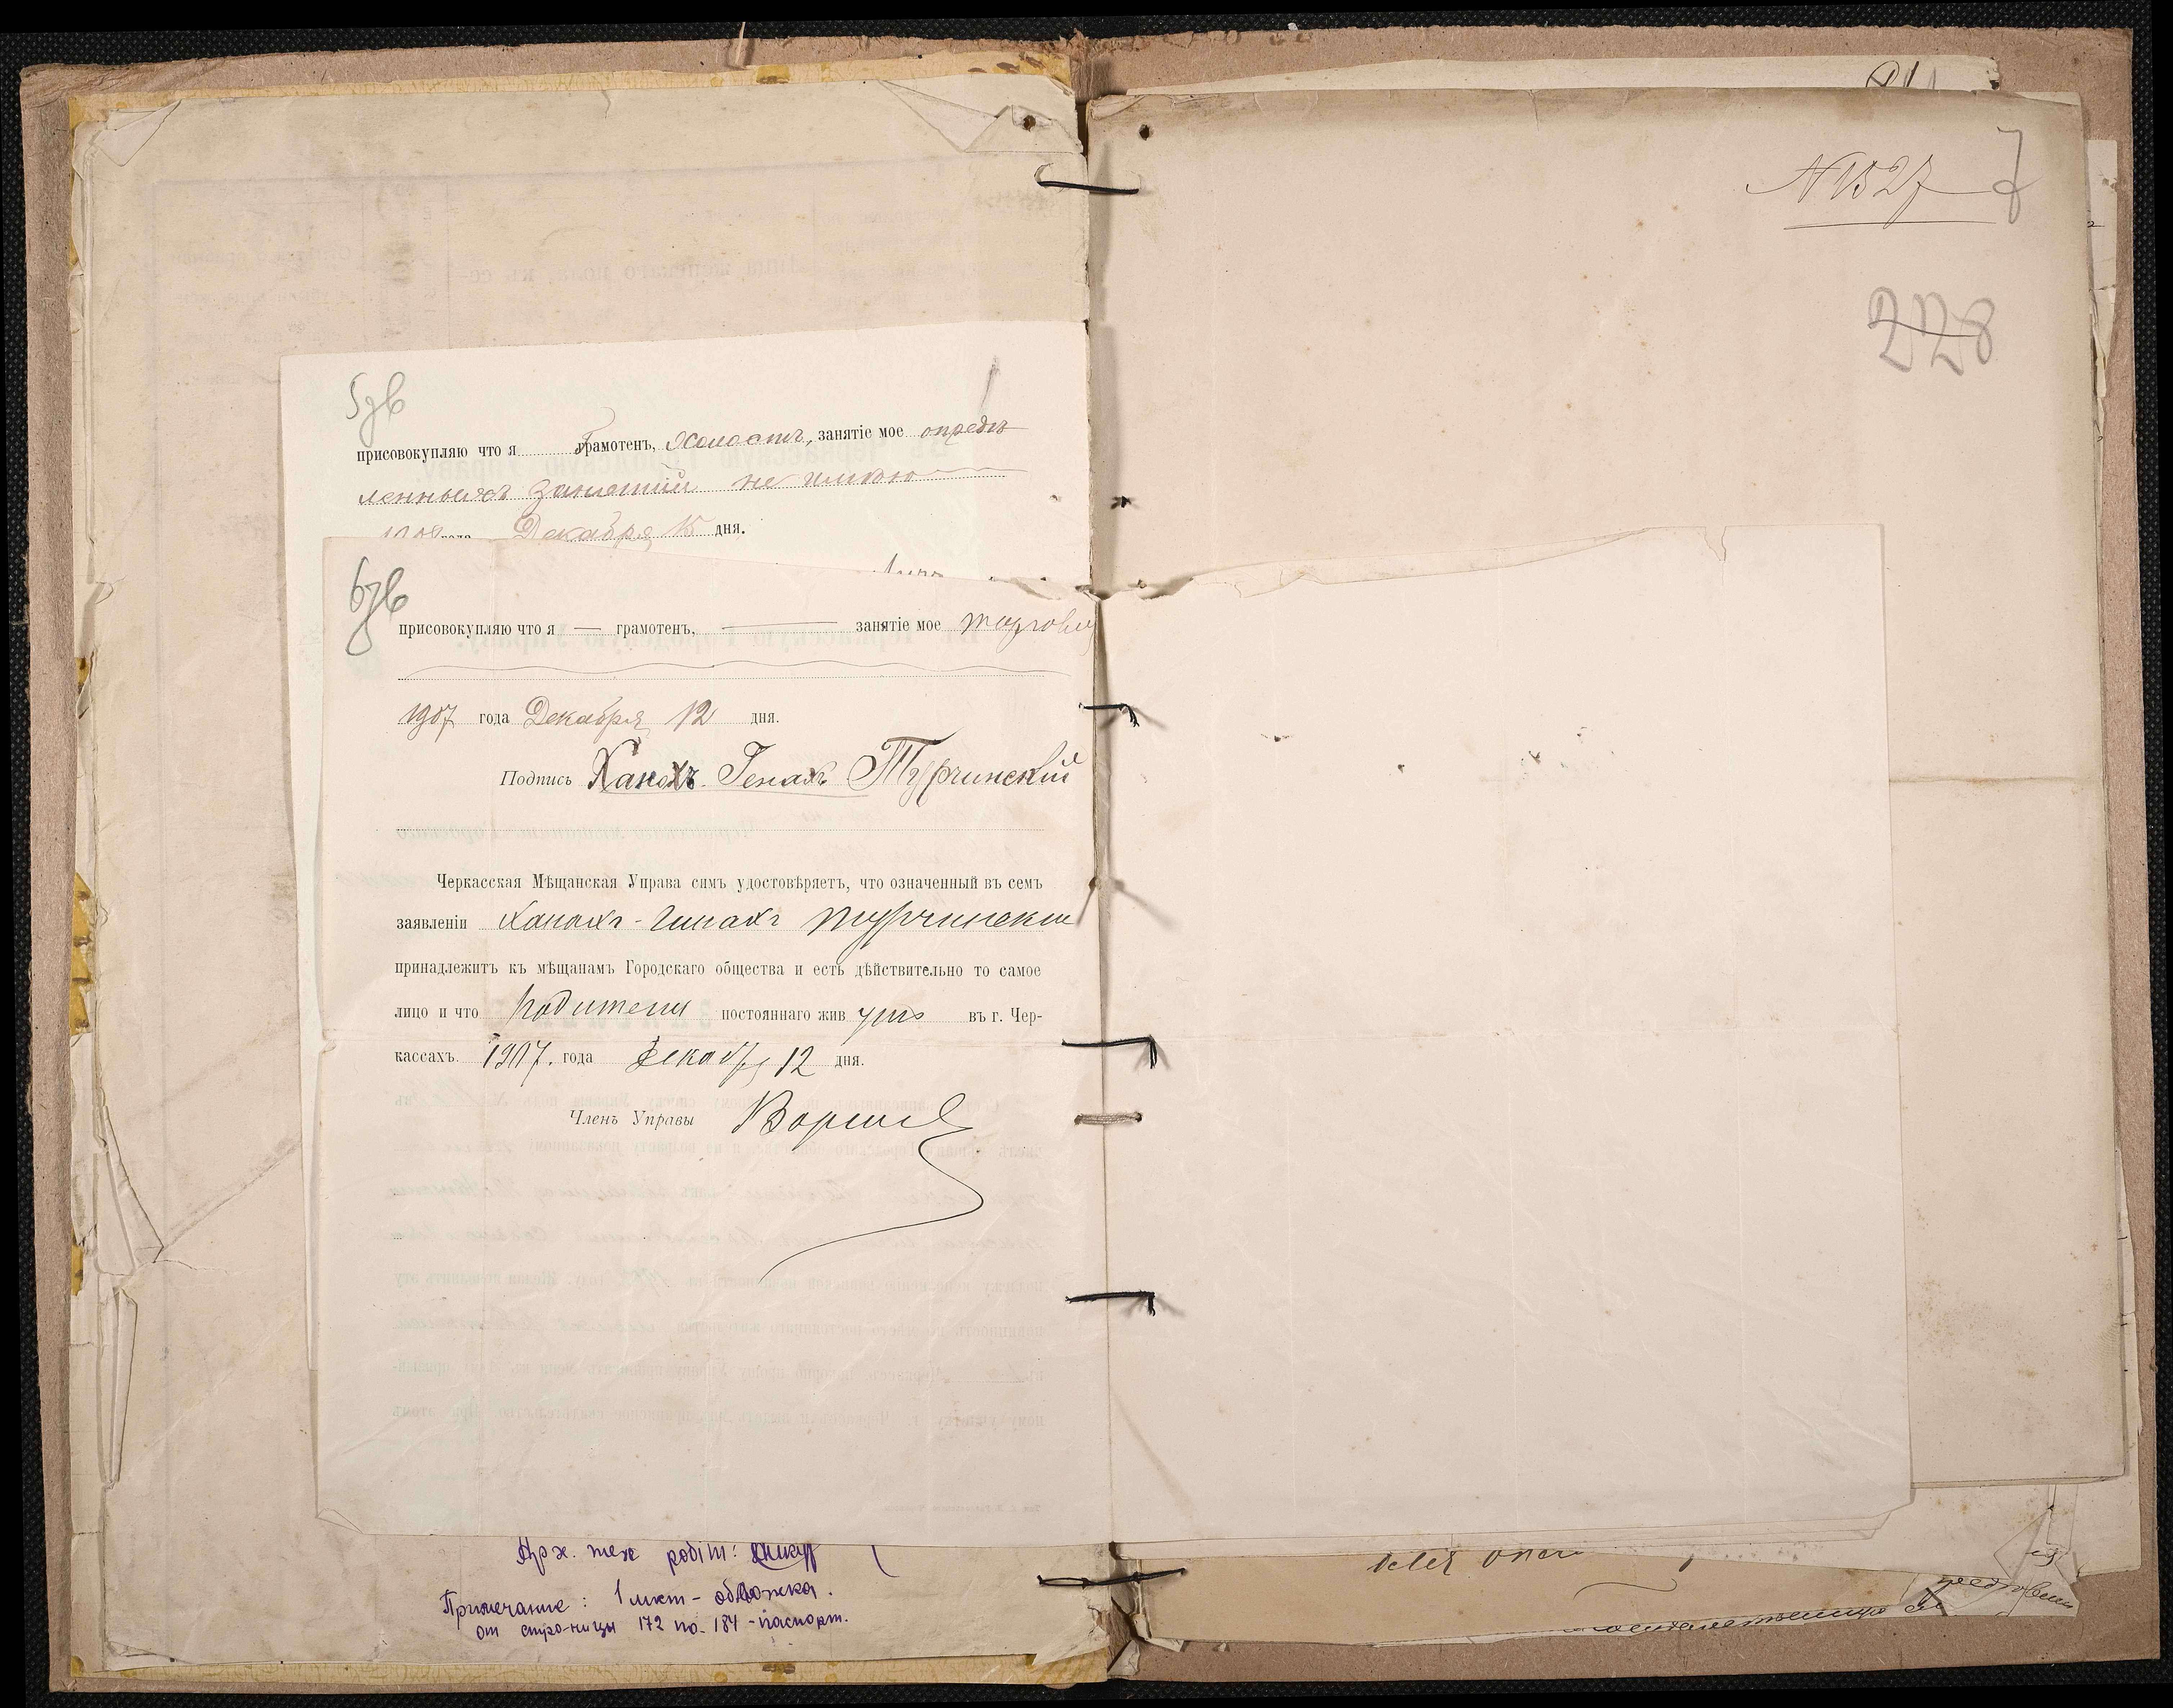 5зв
присовокупляю что я грамотенъ, Холостъ, занятіе мое опредѣ
ленныхъ занятий не имѣю
года Декабря 15 дня.
6зв
присовокупляю что я — грамотенъ, — занятіе мое торговля
1907 года Декабря 12 дня.
Подпись Ханохъ-Генахъ Турчинский
Черкасская Мѣщанская Управа симъ удостовѣряетъ, что означенный въ семъ
заявленіи Ханохъ-Генахъ Турчинский
принадлежитъ къ мѣщанамъ Городскаго общества и есть дѣйствительно то самое
лицо и что родители постояннаго жив утъ въ г. Чер-
кассахъ. 1907. года Декабр 12 дня.
Членъ Управы
Арх. тех робіт:
Примечание: 1 лист - обложка.
от страницы 172 по 184 - паспорт.
N 1527
7
228